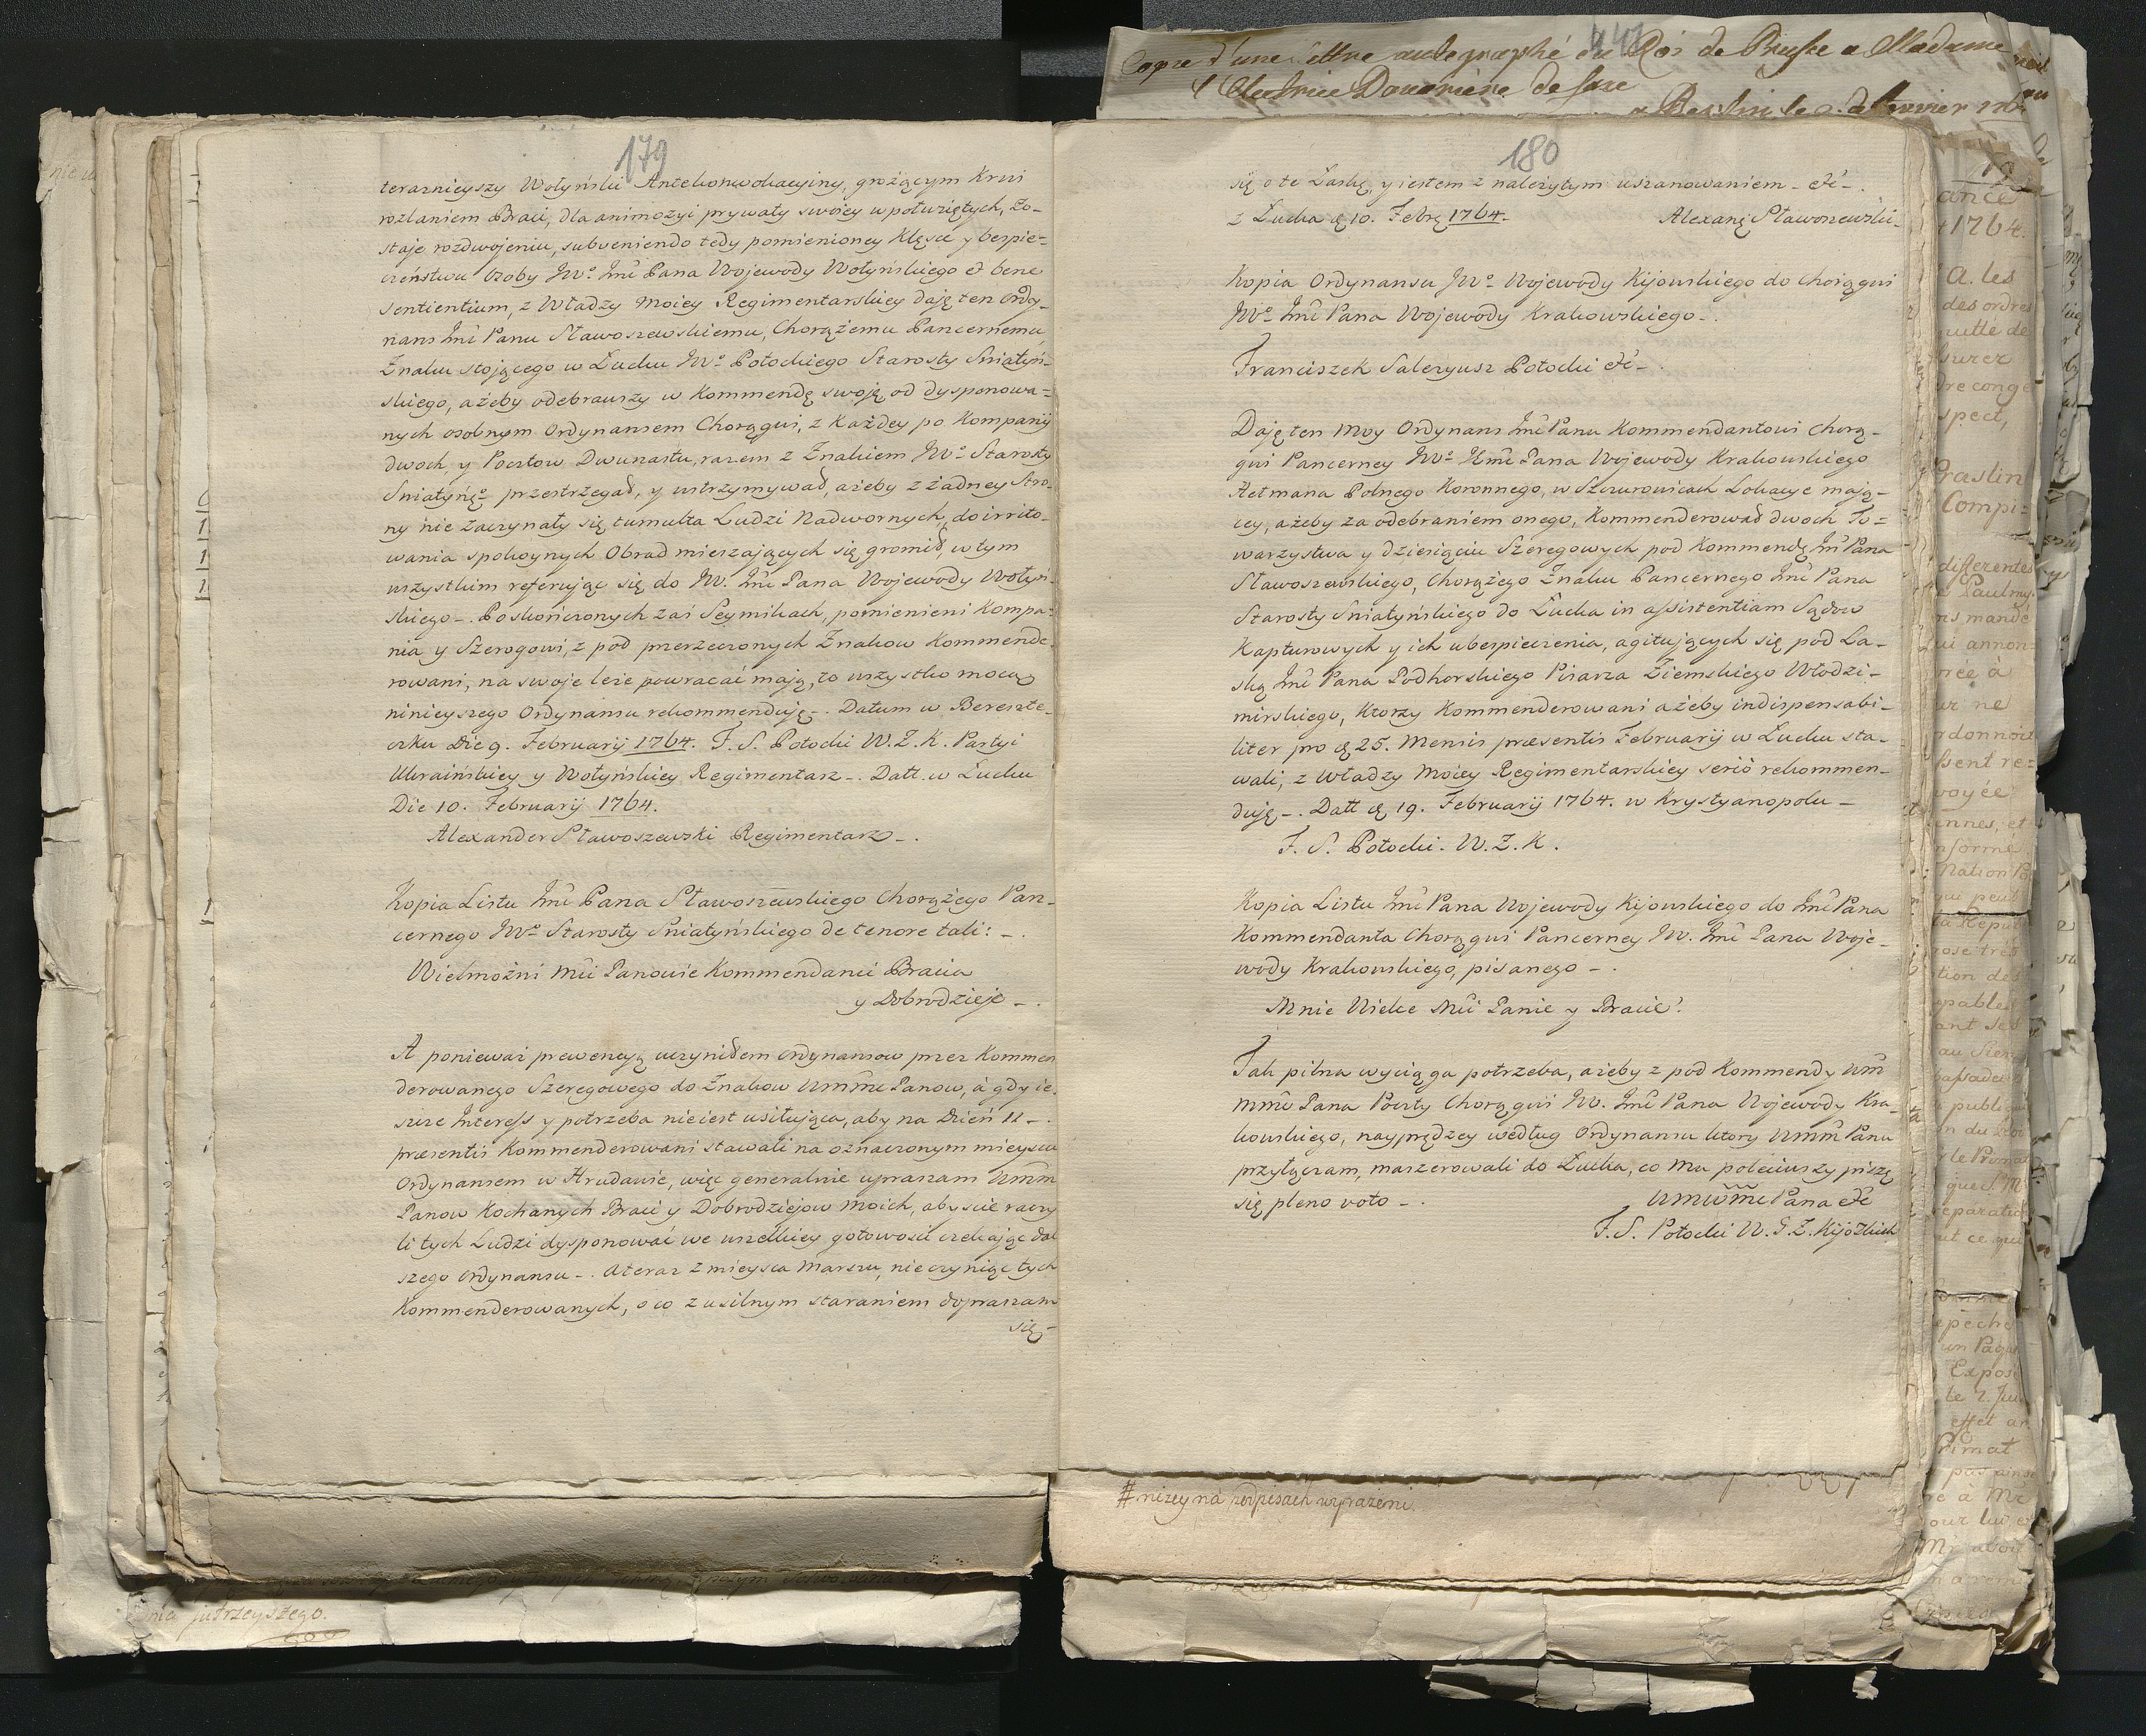 179
teraznieyszy Wołyński Antekonwokacyiny, grożącym Krwi
rozlaniem Braci, dla animozyi prywaty swoiey wpołwziętych, zo-
staje rozdwojeniu, subveniendo tedy pomienioney Klęsce y bespie-
czeństwu Osoby JWº Jmci Pana Wojewody Wołyńskiego et bene
sentientium, z Władzy Moiey Regimentarskiey daję ten Ordy-
nans Jmci Panu Stawoszewskiemu, Chorążemu Pancernemu
Znaku stojącego w Łucku JWº Potockiego Starosty Sniatyń-
skiego, ażeby odebrawszy w Kommendę swoję od dysponowa-
nych osobnym Ordynansem Chorągwi, z Każdey po Kompanij
dwoch y Pocztow Dwunastu, razem z Znakiem JWº Starosty
Sniatyńgº przestrzegał, y wstrzymywał, ażeby z żadney Stro-
ny nie zaczynały się tumulta Ludzi Nadwornych, do irrito-
wania spokoynych Obrad mieszających się gromił, w tym
wszystkim referując się do JW. Jmci Pana Wojewody Wołyń-
skiego -. Po skończonych zaś Seymikach, pomienieni Kompa-
nia y Szerogowi, z pod przerzeczonych Znakow Kommende-
rowani, na swoje leże powracać mają, co wszystko mocą
ninieyszego Ordynansu rekommenduję -. Datum w Bereste-
czku Die 9. Februarij 1764. F. S. Potocki W. Z. K. Partyi
Ukraińskiey y Wołyńskiey Regimentarz -. Datt. w Łucku
Die 10. Februarij 1764.
Alexander Stawoszewski Regimentarz -.
Kopia Listu Jmci Pana Stawoszewskiego Chorążego Pan-
cernego JWº Starosty Sniatyńskiego de tenore tali: -.
Wielmożni Mci Panowie Kommendanci Bracia
y Dobrodzieje -.
A ponieważ prewencyą uczyniłem Ordynansow przez Kommen
derowanego Szeregowego do Znakow Ummci Panow, á gdy ie-
szcze Interess y potrzeba nieiest usiłująca, aby na Dzień 11 -.
præsentis Kommenderowani stawali na oznaczonym mieyscu
Ordynansem w Hrudawie, więc generalnie upraszam Umm
Panow Kochanych Braci y Dobrodziejow moich, abyscie raczy
li tych Ludzi dysponować we wszelkiey gotowosci czekając dal
szego Ordynansu -. A teraz z mieysca Marszu, nie czyniąc tych
Kommenderowanych, o co z usilnym staraniem dopraszam
się -
180
się o te Łaskę, y iestem z należytym uszanowaniem - etc -.
z Łucka d. 10. Febrę 1764. Alexandę Stawoszewski -
Kopia Ordynansu JWº Wojewody Kijowskiego do Chorągwi
JWº Jmci Pana Wojewody Krakowskiego -.
Franciszek Salezyusz Potocki etc -.
Daję ten Moy Ordynans Jmci Panu Kommendantowi Chorą-
gwi Pancerney JWº Jmci Pana Wojewody Krakowskiego
Hetmana Polnego Koronnego, w Szczurowicach Lokacye mają-
cey, ażeby za odebraniem onego, Kommenderował dwoch To-
warzystwa y dziesięciu Szeregowych pod Kommendę Jmci Pana
Stawoszewskiego, Chorążego Znaku Pancernego Jmci Pana
Starosty Sniatyńskiego do Łucka in assistentiam Sądow
Kapturowych y ich ubespieczenia, agitujących się pod La-
ską Jmci Pana Podhorskiego Pisarza Ziemskiego Włodzi-
mirskiego, Ktorzy Kommenderowani ażeby indispensabi-
liter pro d. 25. Mensis præsentis Februarij w Łucku sta-
wali, z Władzy Moiey Regimentarskiey seriò rekommen-
duję -. Datt d. 19. Februarij 1764. w Krystyanopolu -
F. S. Potocki. W. Z. K.
Kopia Listu Jmci Pana Wojewody Kijowskiego do Jmci Pana
Kommendanta Chorągwi Pancerney JW. Jmci Pana Woje-
wody Krakowskiego, pisanego -.
Mnie Wielce Mci Panie y Bracie!
Tak pilna wyciąga potrzeba, ażeby z pod Kommendy Um
mmci Pana Poczty Chorągwi JW. Jmci Pana Wojewody Kra-
kowskiego, nayprędzey według Ordynansu ktory Ummci Panu
przyłączam, maszerowali do Łucka, co Mu poleciwszy piszę
się pleno voto -. Umwmci Pana etc
F. S. Potocki W. G. Z. Kijowskich
# niżey na podpisach wyrażeni.
Copie d'une lettre autographé du Roi de Prusse a Madame
l'Electrice Douariere de Saxe
nia jutrzeyszego.